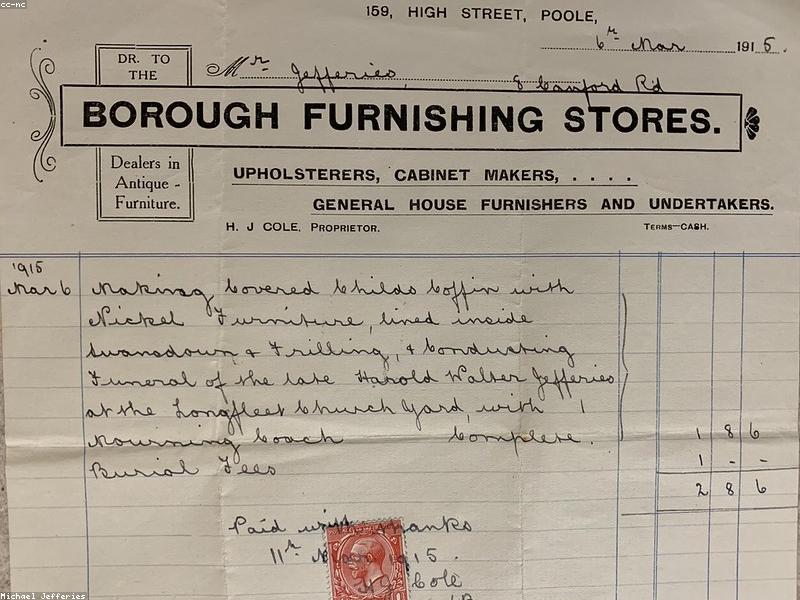 cc-nc
159, HIGH STREET, POOLE,
6th Mar 1915.
DR. TO
THE
Mr Jefferies, 8 Canford Rd
BOROUGH FURNISHING STORES.
Dealers in
Antique -
Furniture.
UPHOLSTERERS, CABINET MAKERS, . . . .
GENERAL HOUSE FURNISHERS AND UNDERTAKERS.
H. J COLE, PROPRIETOR.
TERMS—CASH.
1915
Mar 6 Making Covered Childs Coffin with
Nickel Furniture, lined inside
Swansdown & Frilling, & Conducting
Funeral of the late Harold Walter Jefferies
at the Longfleet Church Yard, with 1
Mourning Coach Complete. 1 8 6
Burial Fees 1 - -
2 8 6
Paid with thanks
11th 1915.
Cole
Michael Jefferies